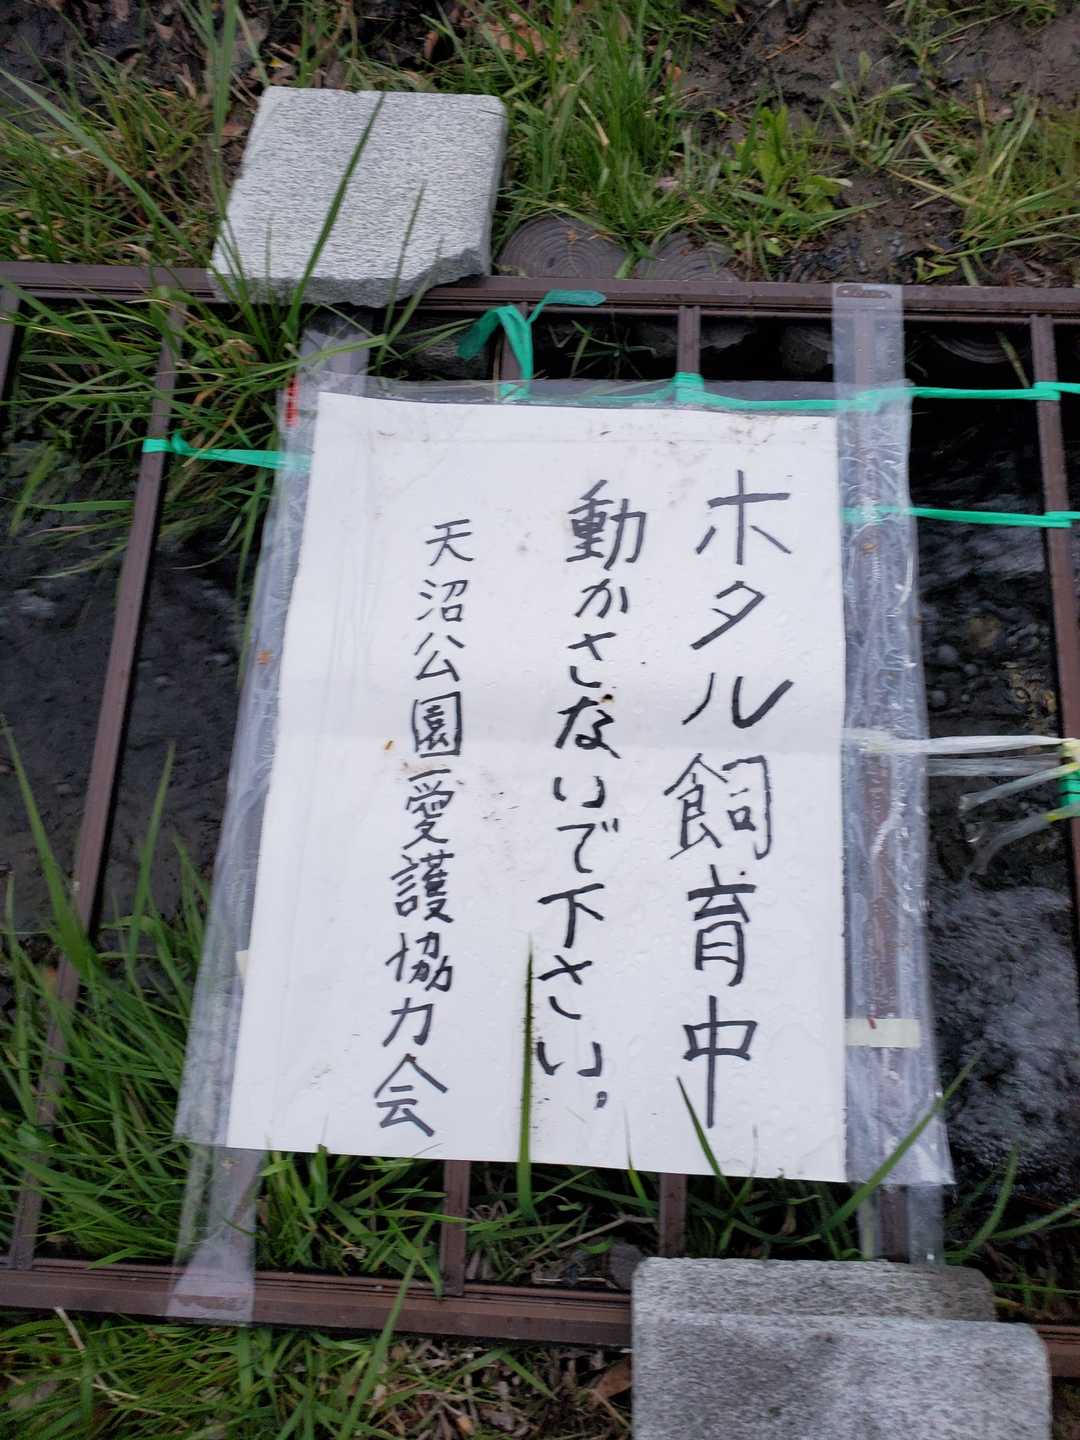 ホタル飼育中
動かさないで下さい。
天沼公園愛護協力会